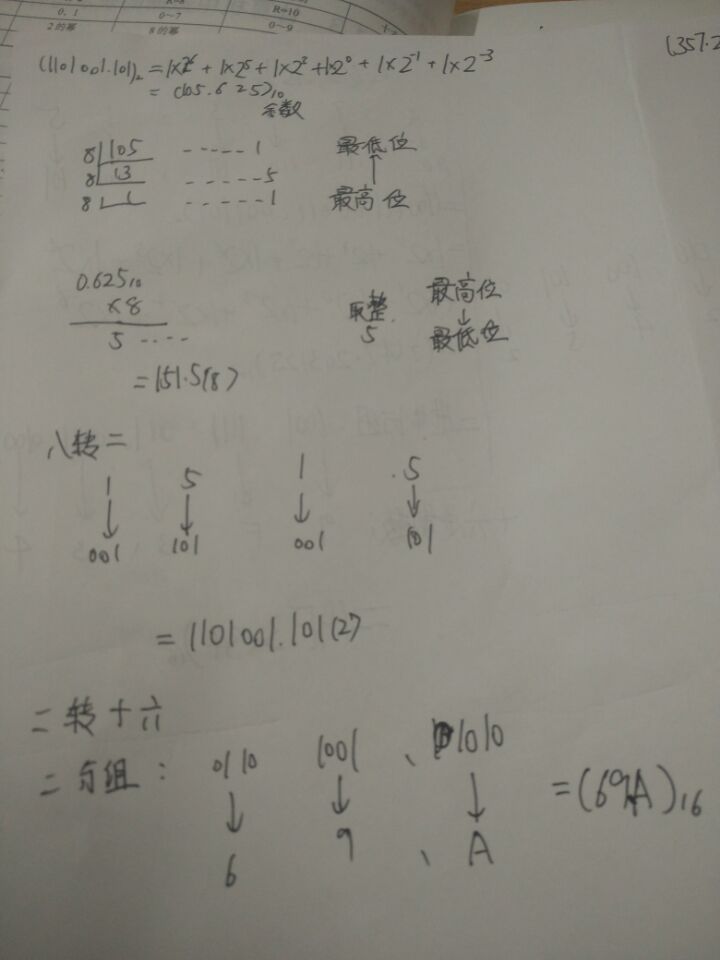 0, 1 R=8 R=10
2的幂 0~7 0~9
8的幂
(1101001.101)₂ = 1×2⁶ + 1×2⁵ + 1×2³ + 1×2⁰ + 1×2⁻¹ + 1×2⁻³
= (105.625)₁₀
余数
8 105 -----1 最低位
8 13 -----5 ↑
8 1 -----1 最高位
0.625₁₀ 最高位
×8 取整. ↓
5 ···· 5 最低位
= 151.5(8)
八转二
1 5 1 .5
↓ ↓ ↓ ↓
001 101 001 101
= 1101001.101(2)
二转十六
二分组: 0110 1001 、 1010
↓ ↓ ↓ = (69A)₁₆
6 9 、 A
(357.2